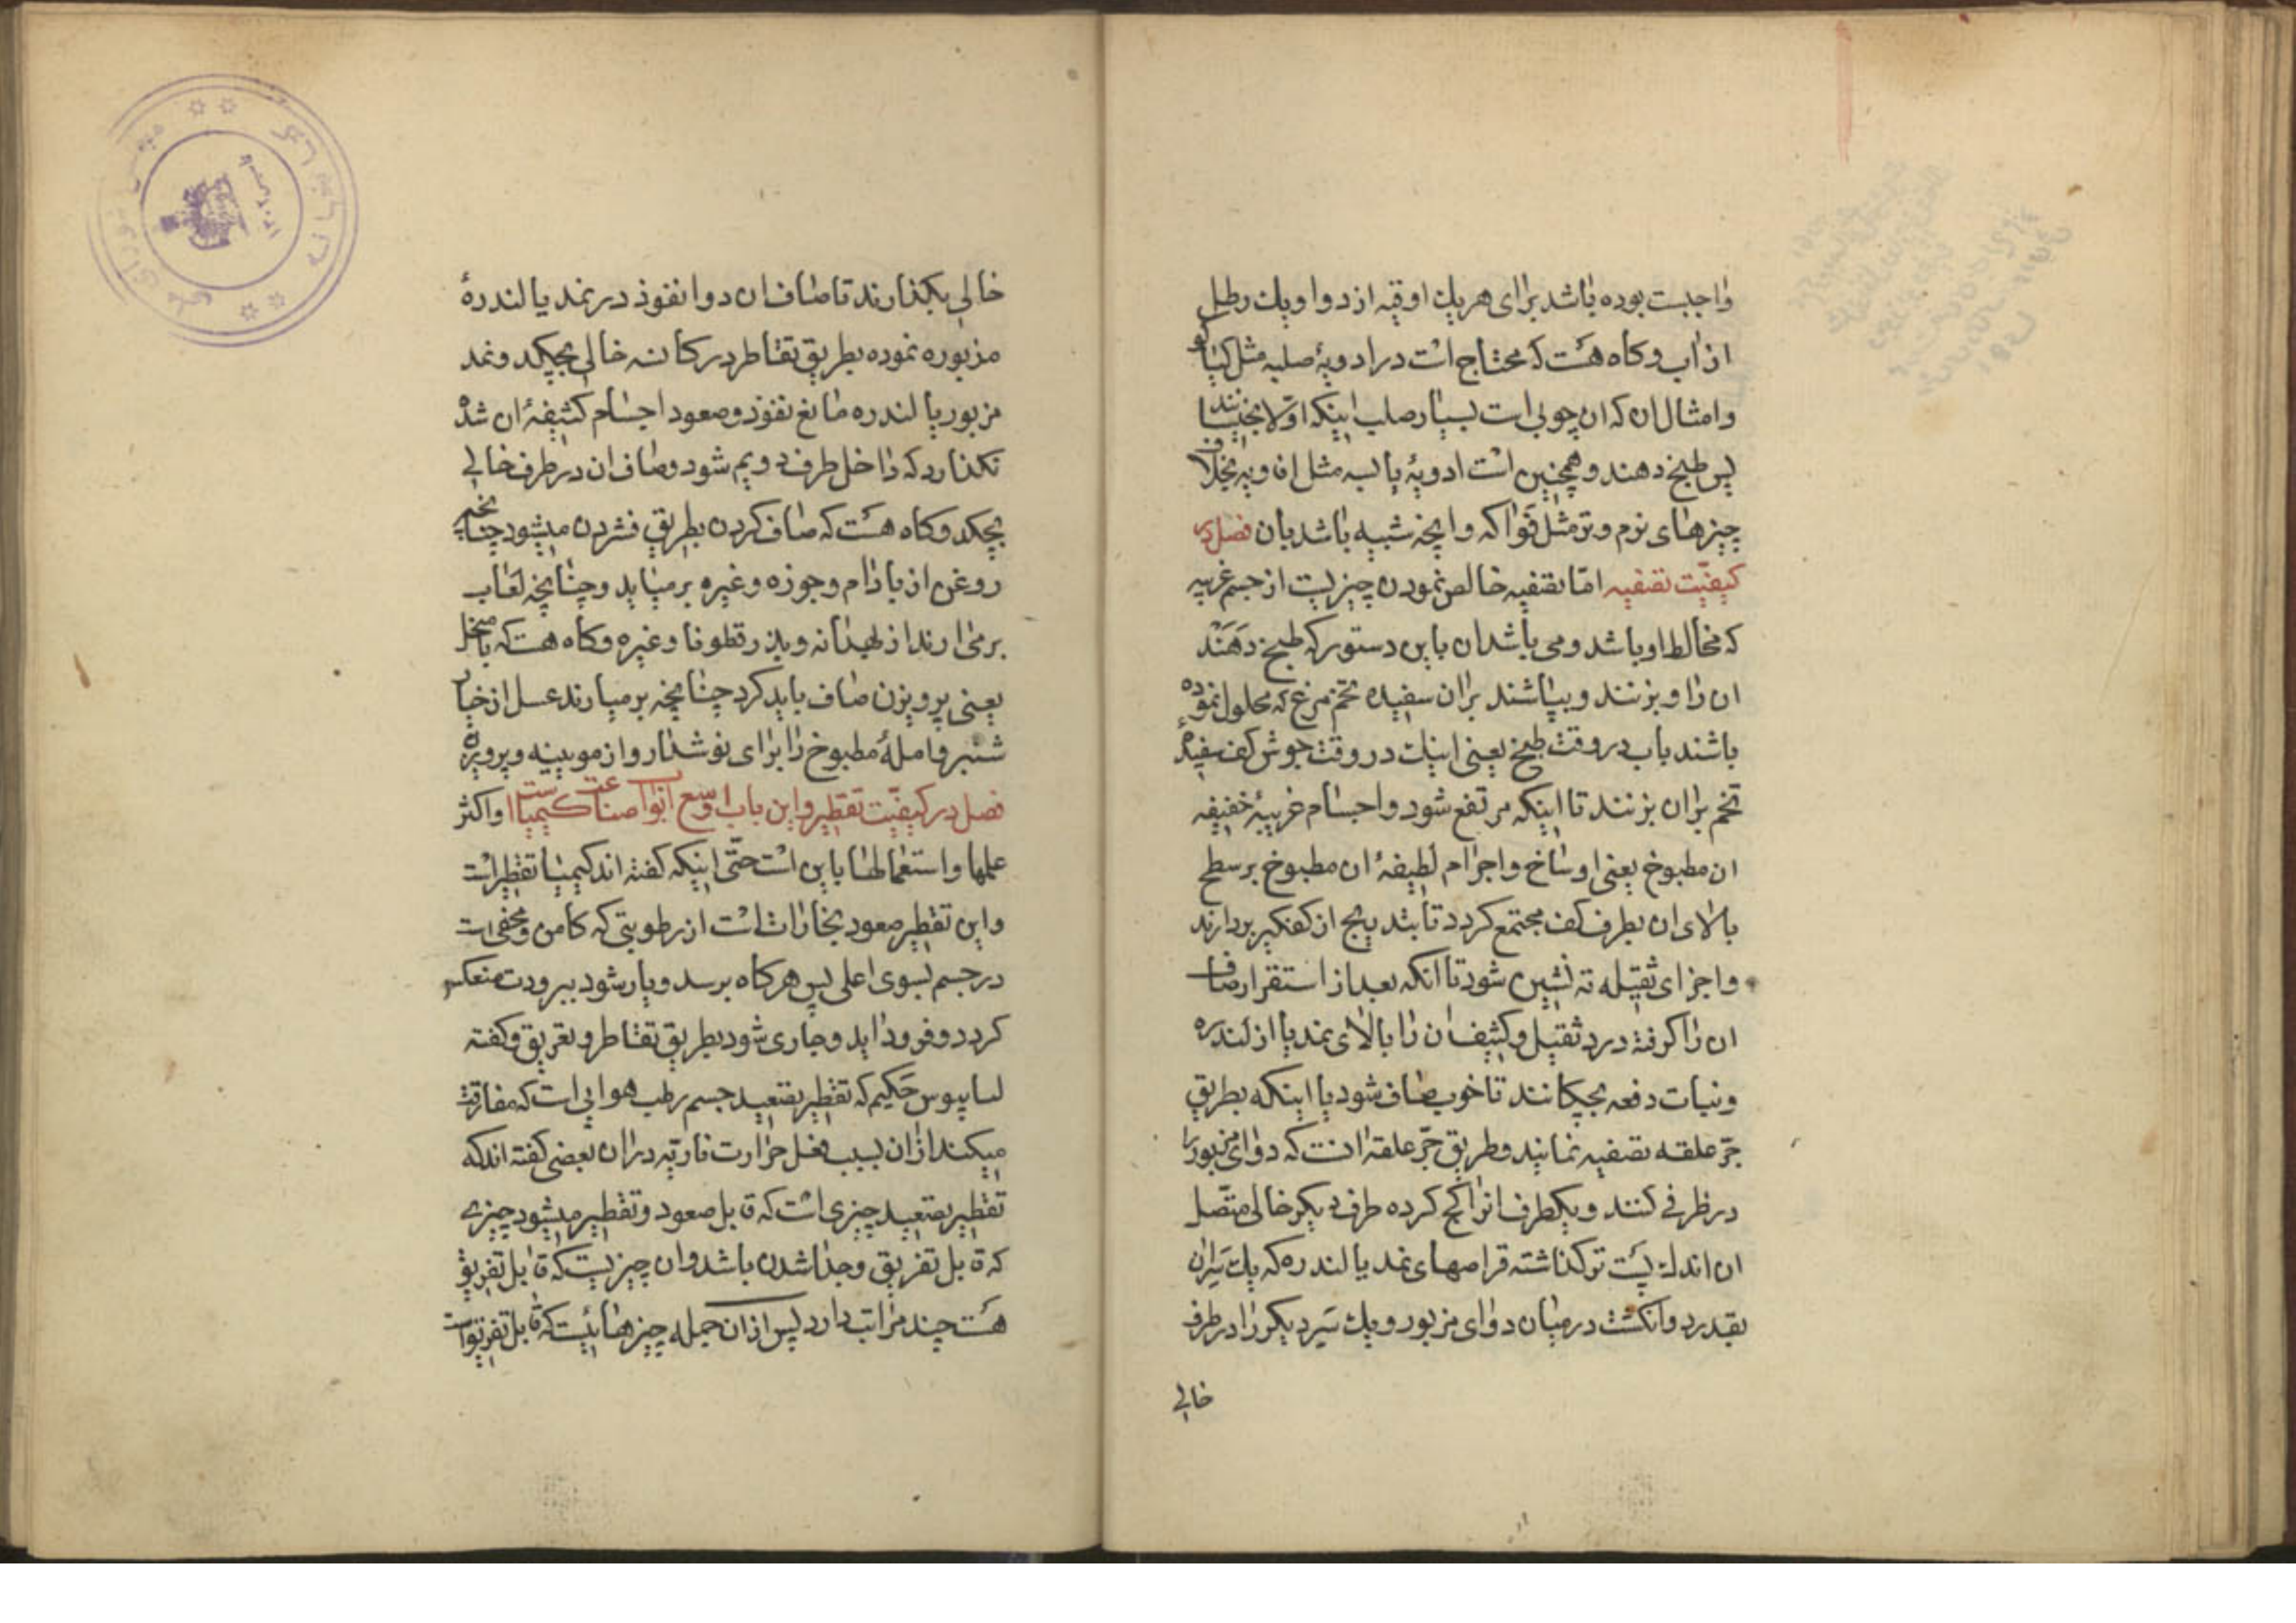 واجبست بوده باشد برای هر یك اوقیه از دوا ویك رطل
از اب وکاه هست که محتاج است در ادویهٔ صلبه مثل کیناو
وامثال ان که ان چوبی است بسیار صلب اینکه اوّلا بخیسانند
پس طبخ دهند وهمچنین است ادویهٔ یابسه مثل افاویه بخلاف
چیزهای نرم وتر مثل فواکه وانچه شبیه باشد بان فصل در
کیفیّت تصفیه امّا تصفیه خالص نمودن چیزیست از جسم غریبه
که مخالط او باشد ومی باشد ان باین دستور که طبخ دهند
ان را وبزنند وبپاشند بران سفیده تخم مرغ که محلول نموده
باشند باب در وقت طبخ یعنی اینك در وقت جوش کف سفیدهٔ
تخم بران بزنند تا اینکه مرتفع شود واجسام غریبهٔ خفیفه
ان مطبوخ یعنی اوساخ واجرام لطیفهٔ ان مطبوخ بر سطح
بالای ان بطرف کف مجتمع کردد تا بتدریج از کفکیر بردارند
واجزای ثقیله ته نشین شود تا انکه بعد از استقرار صاف
ان را کرفته درد ثقیل وکثیف ان را بالای نمد یا از لندره
ونبات دفعه بچکانند تا خوب صاف شود یا اینکه بطریق
جرّ علقه تصفیه نمایند وطریق جرّ علقه انست که دوای مزبور را
در ظرفی کنند ویکطرف انرا کج کرده طرف دیکر خالی متّصل
ان اندك پست تر کذاشته قراصهای نمد یا لندره که یك سران
بقدر دو انکشت در میان دوای مزبور ویك سر دیکر را در طرف
خالی
خالی بکذارند تا صاف ان دوا نفوذ در نمد یا لندرهٔ
مزبوره نموده بطریق تقاطر در کاسه خالی بچکد ونمد
مزبور یا لندره مانع نفوذ وصعود اجسام کثیفهٔ ان شده
نکذارد که داخل طرف دویم شود وصاف ان در طرف خالی
بچکد وکاه هست که صاف کردن بطریق فشردن میشود چنانچه
روغن از بادام وجوزه وغیره برمیاید وچنانچه لعاب
برمی ارند از لهدانه وبذر قطونا وغیره وکاه هست که بامنخل
یعنی پرویزن صاف باید کرد چنانچه برمیارند عسل از خیار
شنبر واملهٔ مطبوخ را برای نوشدارو از مویینه وپرویزن
فصل در کیفیّت تقطیر واین باب اوسع ابواب صناعت کیمیاست واکثر
عملها واستعمالها باین است حتّی اینکه کفته اند کیمیا تقطیر است
واین تقطیر صعود بخارات است از رطوبتی که کامن ومخفی است
در جسم بسوی اعلی پس هرکاه برسد وبار شود ببرودت منعکس
کردد وفرود اید وجاری شود بطریق تقاطر وتعریق وکفته
لساپیوس حکیم که تقطیر تصعید جسم رطب هوایی است که مفارقت
میکند ازان بسبب فعل حرارت ناریّه دران بعضی کفته اند که
تقطیر تصعید چیزی است که قابل صعود وتقطیر میشود چیزی
که قابل تفریق وجدا شدن باشد وان چیزیست که قابل تفریق
هست چند مراتب دارد پس ازان جمله چیزهائیست که قابل تفریق است